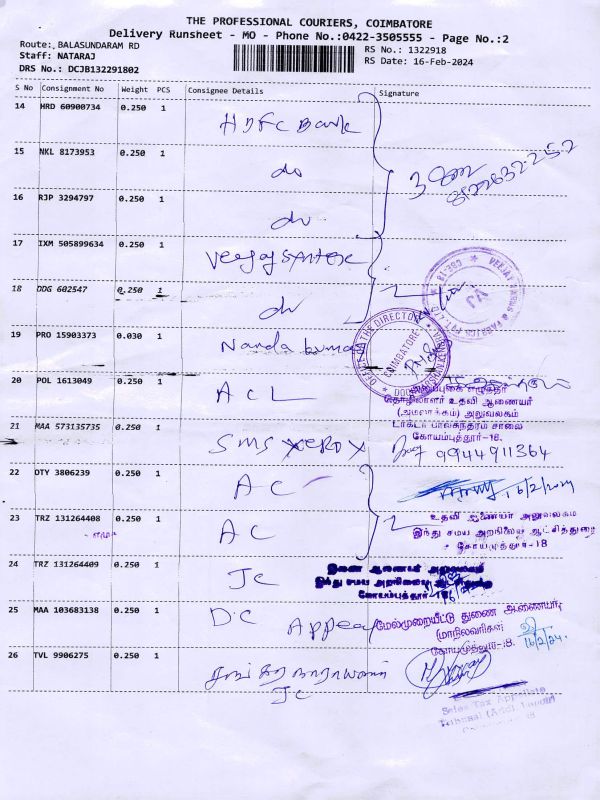 THE PROFESSIONAL COURIERS, COIMBATORE
Delivery Runsheet - MO - Phone No.:0422-3505555 - Page No.:2
Route: BALASUNDARAM RD
RS No.: 1322918
Staff: NATARAJ
RS Date: 16-Feb-2024
DRS No.: DCJB132291802
S No Consignment No Weight PCS Consignee Details Signature
14 HRD 60900734 0.250 1 HDFC Bank
15 NKL 8173953 0.250 1 do
16 RJP 3294797 0.250 1 do
3
17 IXM 505899634 0.250 1
18 DDG 602547 0.250 1 do
2
19 PRO 15903373 0.030 1 Nanda kumar
COIMBATORE
20 POL 1613049 0.250 1 A C L
தொழிலாளர் உதவி ஆணையர்
(அமலாக்கம்) அலுவலகம்
டாக்டர் பாலசுந்தரம் சாலை
கோயம்புத்தூர்-18.
21 MAA 573135735 0.250 1 SMS XEROX
9944911364
22 DTY 3806239 0.250 1 AC
16/2/2024
23 TRZ 131264408 0.250 1 AC
2
உதவி ஆணையர் அலுவலகம்
இந்து சமய அறநிலைய ஆட்சித்துறை
கோயம்புத்தூர்-18
24 TRZ 131264409 0.250 1 JC
இணை ஆணையர் அலுவலகம்
இந்து சமய அறநிலைய
கோயம்புத்தூர்
25 MAA 103683138 0.250 1 DC Appeal
மேல்முறையீட்டு துணை ஆணையர்,
(மாநிலவரிகள்)
கோயமுத்தூர்-18.
16/2/24.
26 TVL 9906275 0.250 1
JC
Sales Tax Appellate
Tribunal (Addl. Bench)